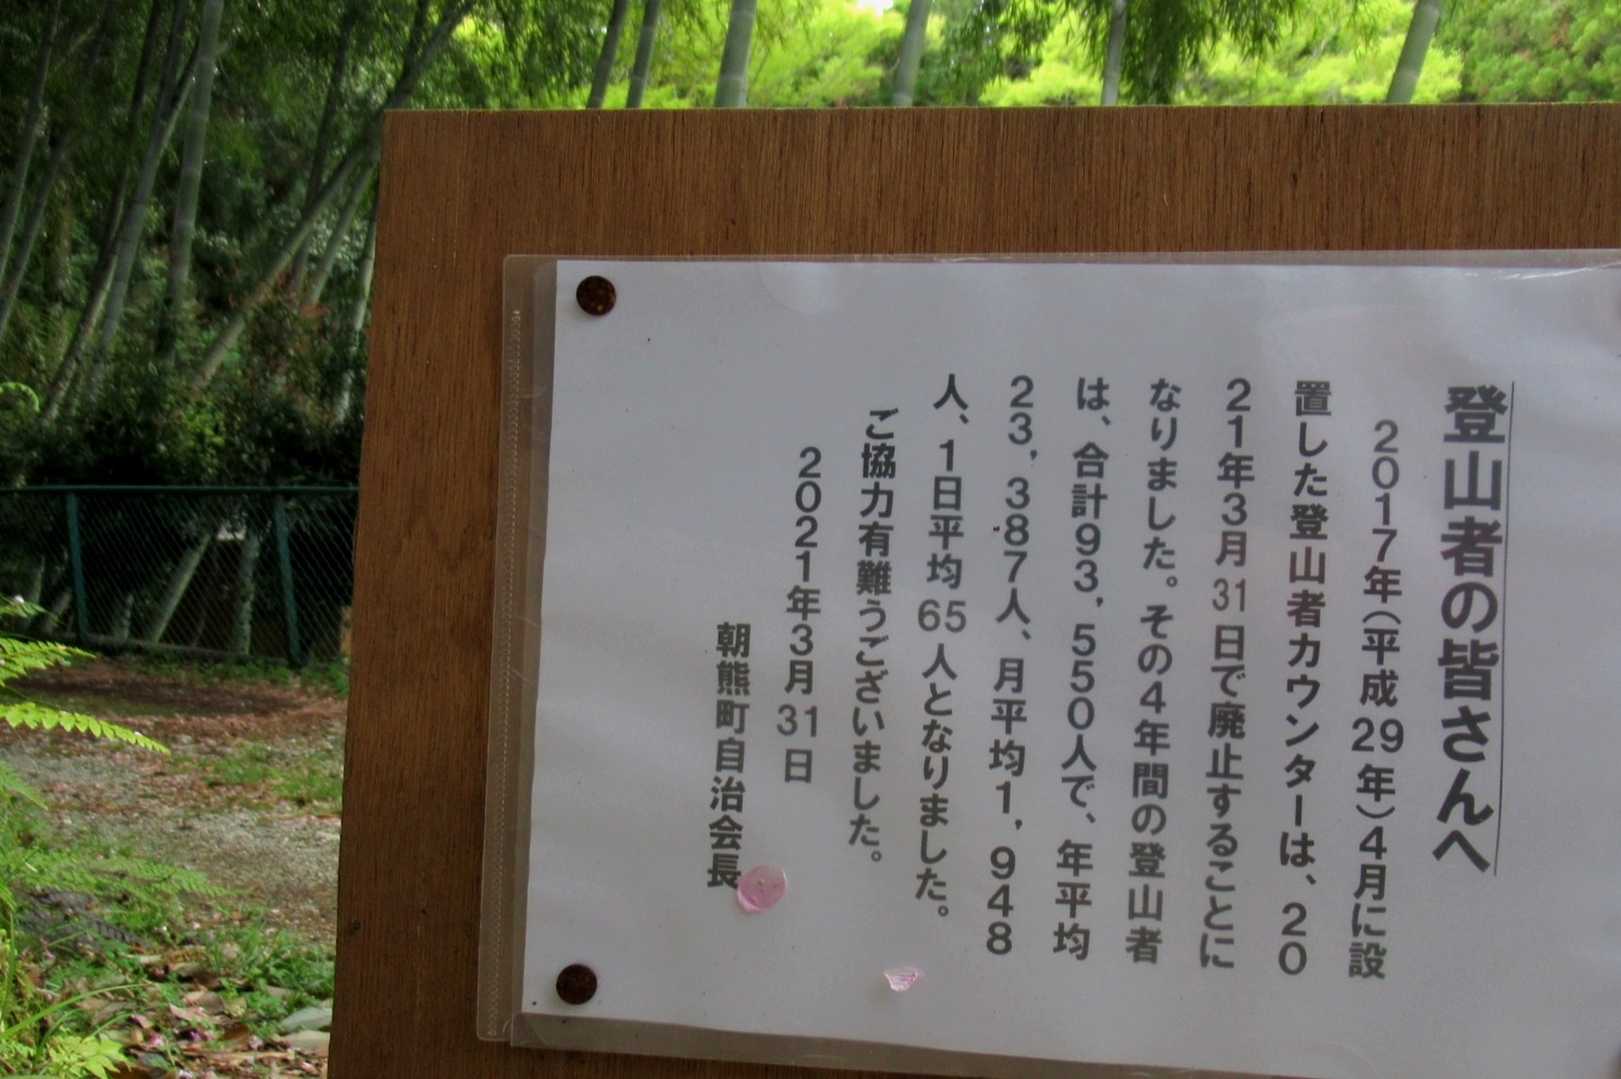 登山者の皆さんへ
2017年(平成29年)4月に設
置した登山者カウンターは、20
21年3月31日で廃止することに
なりました。その4年間の登山者
は、合計93,550人で、年平均
23,387人、月平均1,948
人、1日平均65人となりました。
ご協力有難うございました。
2021年3月31日
朝熊町自治会長